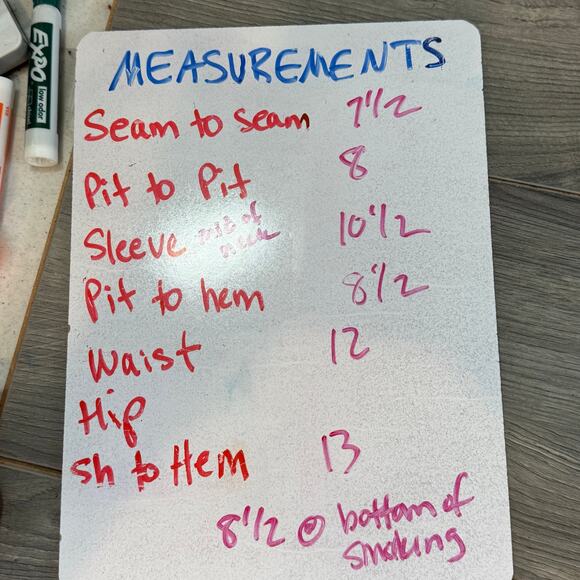 EXPO
low odor
MEASUREMENTS
Seam to seam 7 1/2
Pit to Pit 8
Sleeve mid of neck 10 1/2
Pit to hem 8 1/2
Waist 12
Hip
Sh to Hem 13
8 1/2 @ bottom of
smoking